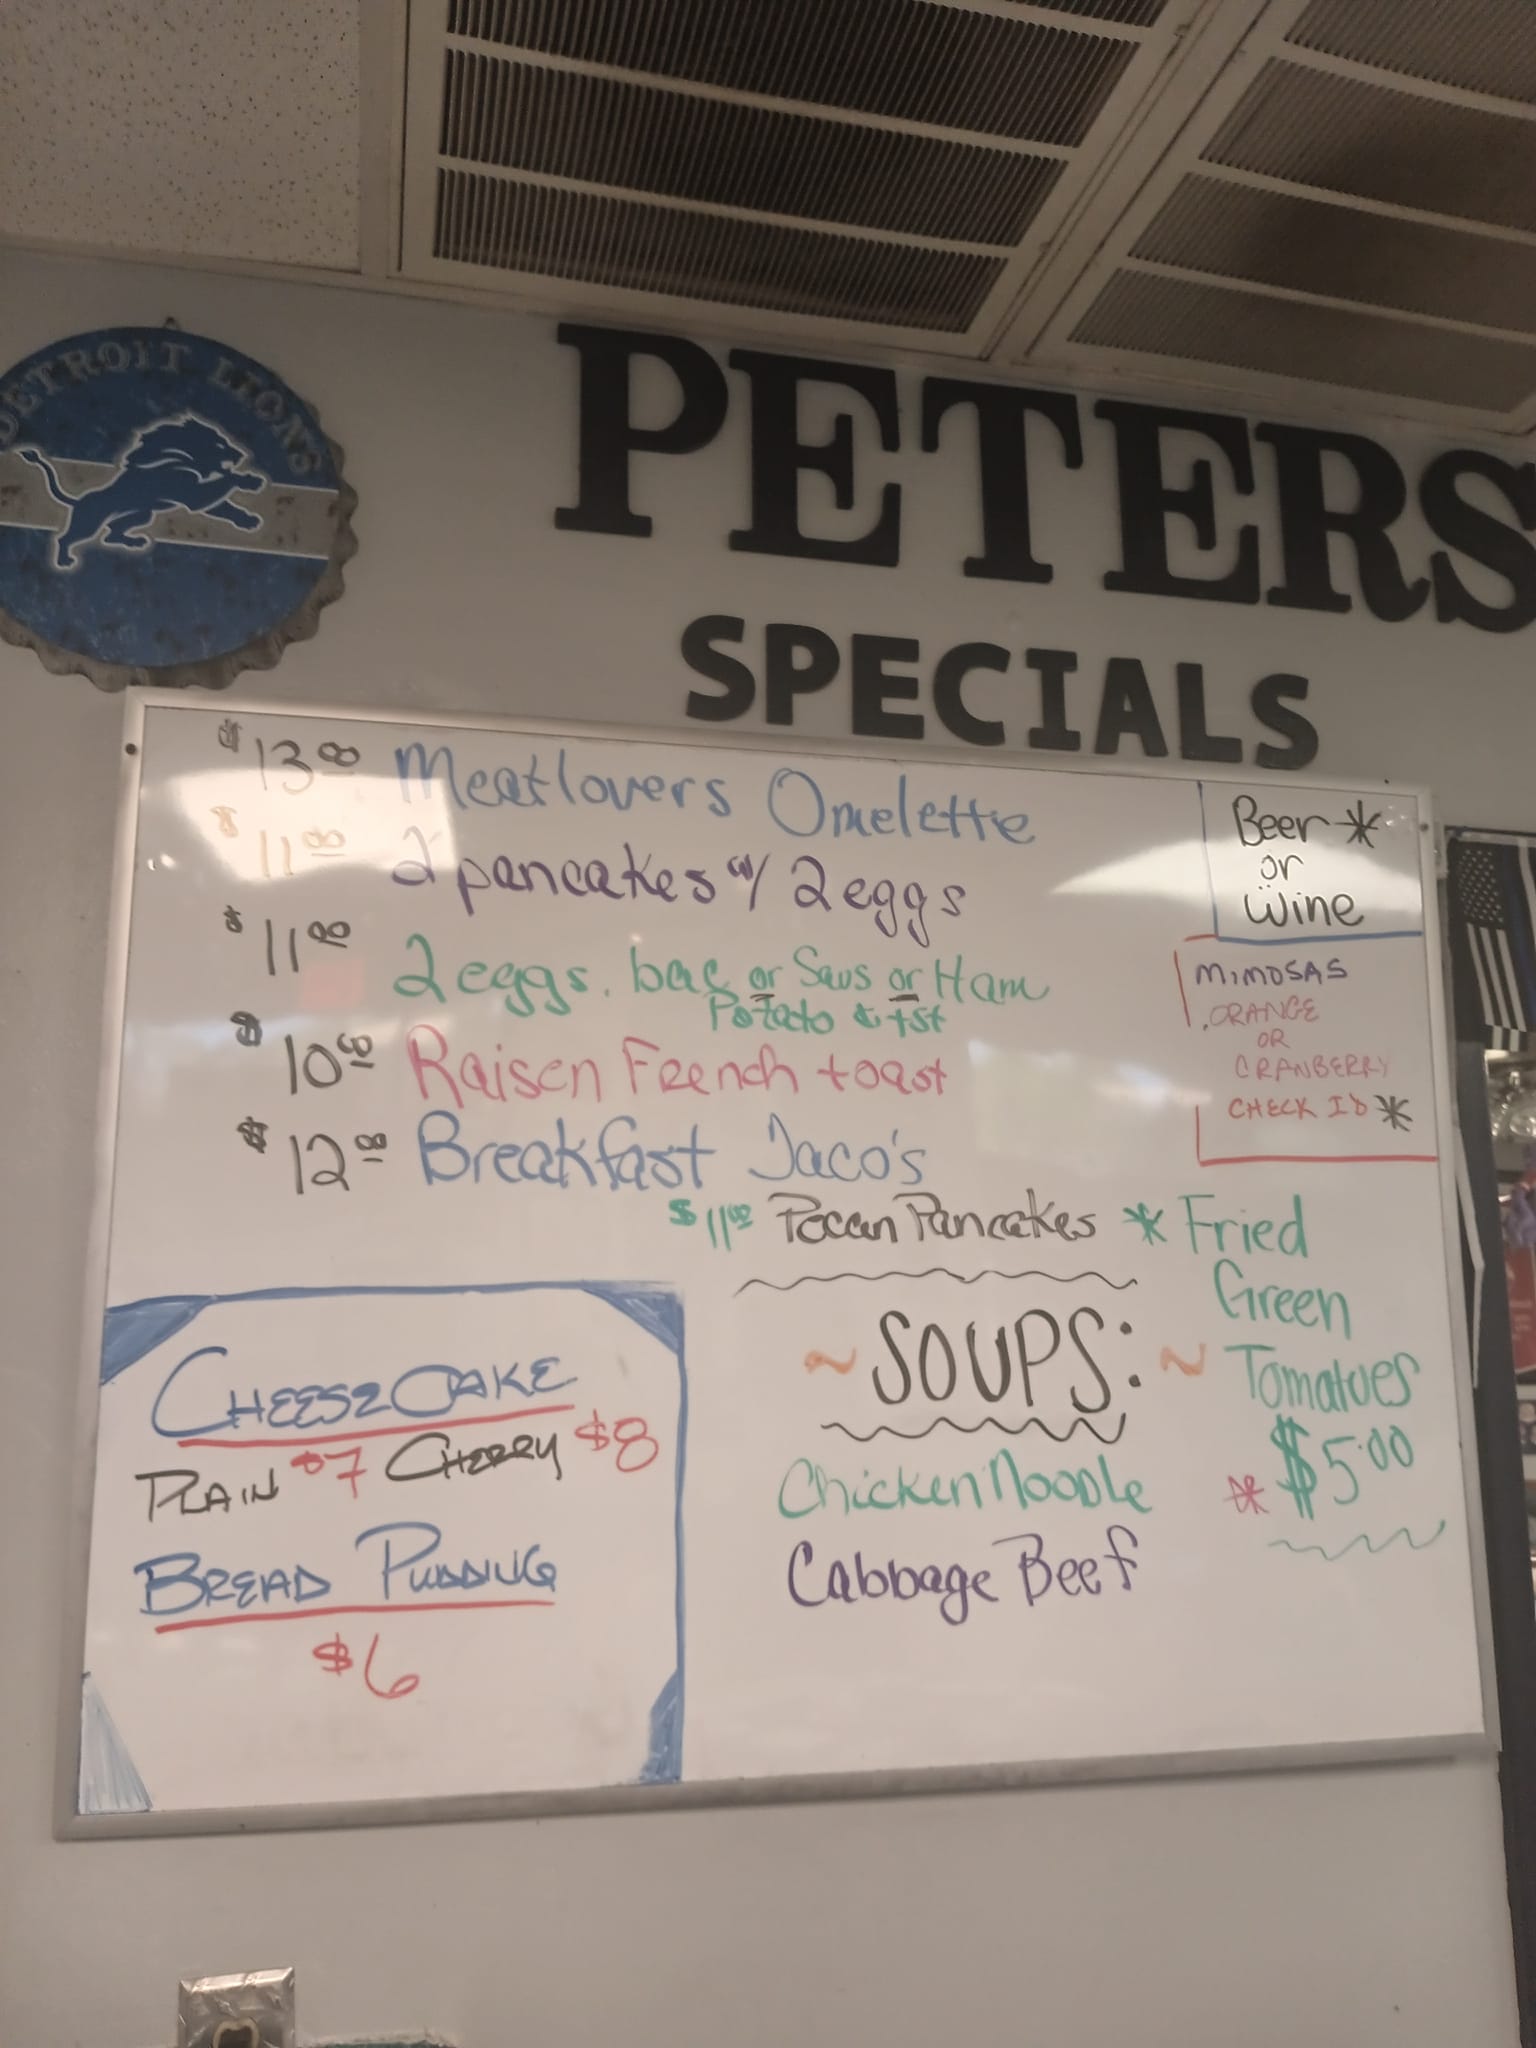 DETROIT LIONS
PETERS
SPECIALS
$13.00 Meatlovers Omelette
$11.00 2 pancakes w/ 2 eggs
$11.00 2 eggs. bac or Saus or Ham
Potato & tst
$10.00 Raisen French toast
$12.00 Breakfast Taco's
$11.00 Pecan Pancakes
Beer *
or
Wine
MIMOSAS
ORANGE
OR
CRANBERRY
CHECK ID *
* Fried
Green
Tomatoes
* $5.00
~ SOUPS: ~
Chicken Noodle
Cabbage Beef
CHEESECAKE
PLAIN $7 CHERRY $8
BREAD PUDDING
$6